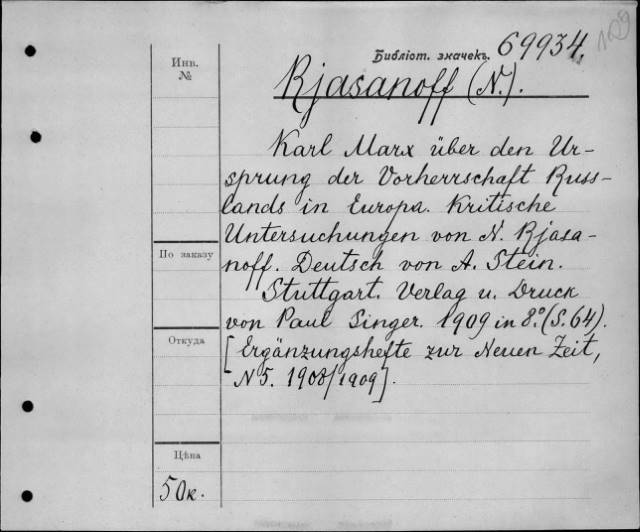 109
Библіот. значекъ. 69934.
Инв.
№
Rjasanoff (N.).
Karl Marx über den Ur-
sprung der Vorherrschaft Russ-
lands in Europa. Kritische
Untersuchungen von N. Rjasa-
noff. Deutsch von A. Stein.
Stuttgart. Verlag u. Druck
von Paul Singer. 1909 in 8.º (S. 64).
[Ergänzungshefte zur Neuen Zeit,
N 5. 1908/1909].
По заказу
Откуда
Цѣна
50к.